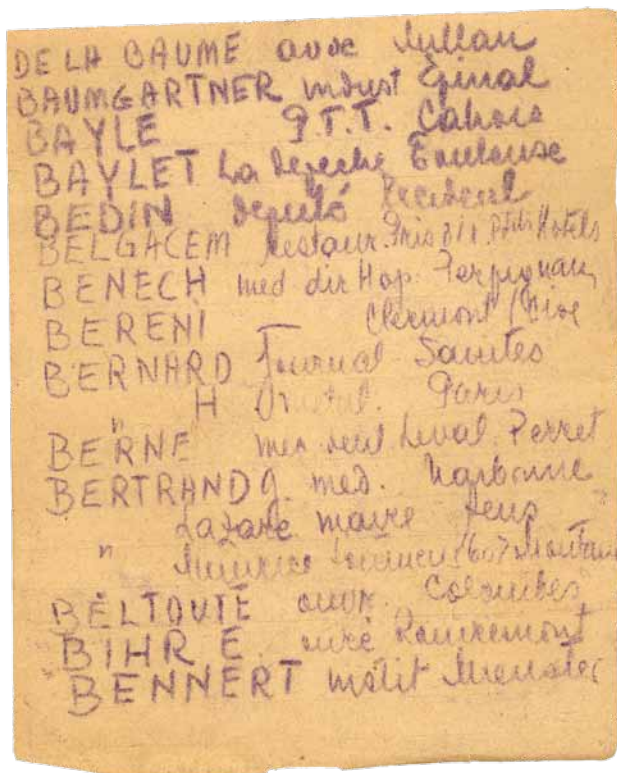 DE LA BAUME avoc Millau
BAUMGARTNER indust Epinal
BAYLE P.T.T. Cahors
BAYLET La depeche Toulouse
BEDIN deputé
BELGACEM restaur. Hotels
BENECH med dir Hop. Perpignan
BERENI Clermont / Oise
BERNARD Journal Saintes
" H Paris
BERNE med Leval. Perret
BERTRAND J. med. Narbonne
" Lazare maire Sens "
" Maurice
BELTOUTE ouvr. Colombes
BIHR E. curé
BENNERT instit Munster